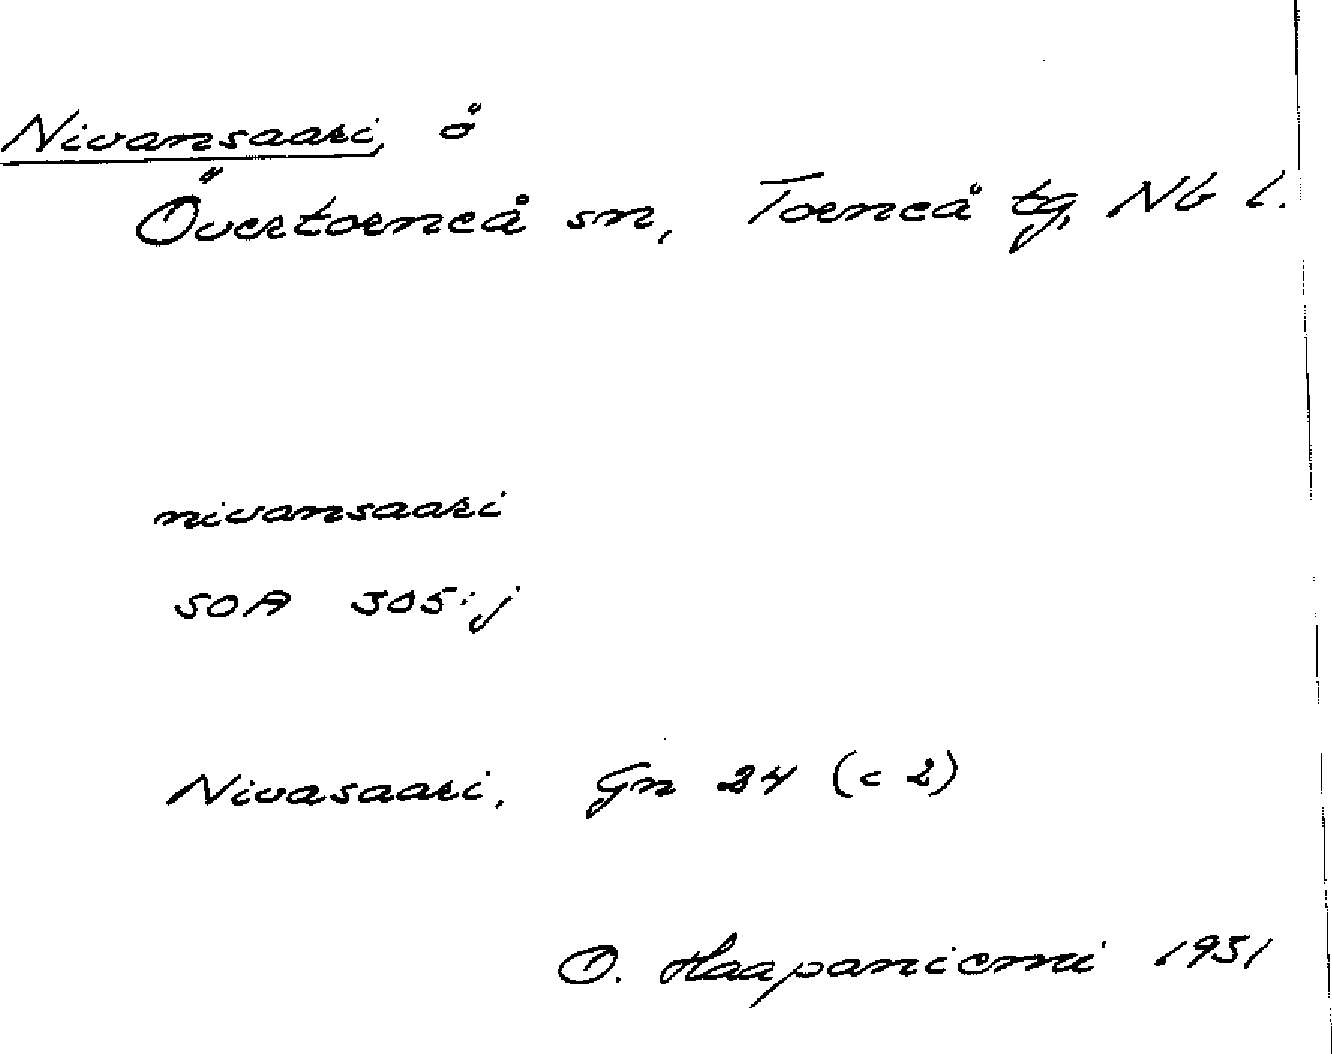 Nivansaari, ö
Övertorneå sn, Torneå tg, Nb l.
nivansaari
SOA 305:j
Nivasaari, Gn 24 (c 2)
O. Haapaniemi 1951